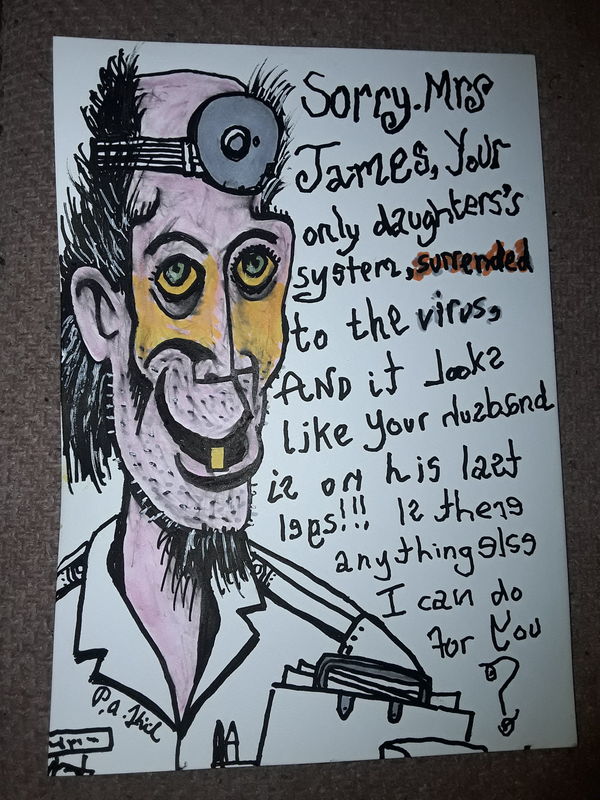 Sorry. Mrs
James, Your
only daughters's
system, surrended
to the virus,
AND it looks
like your husband
is on his last
legs!!! Is there
anything else
I can do
for You
?
P.A.